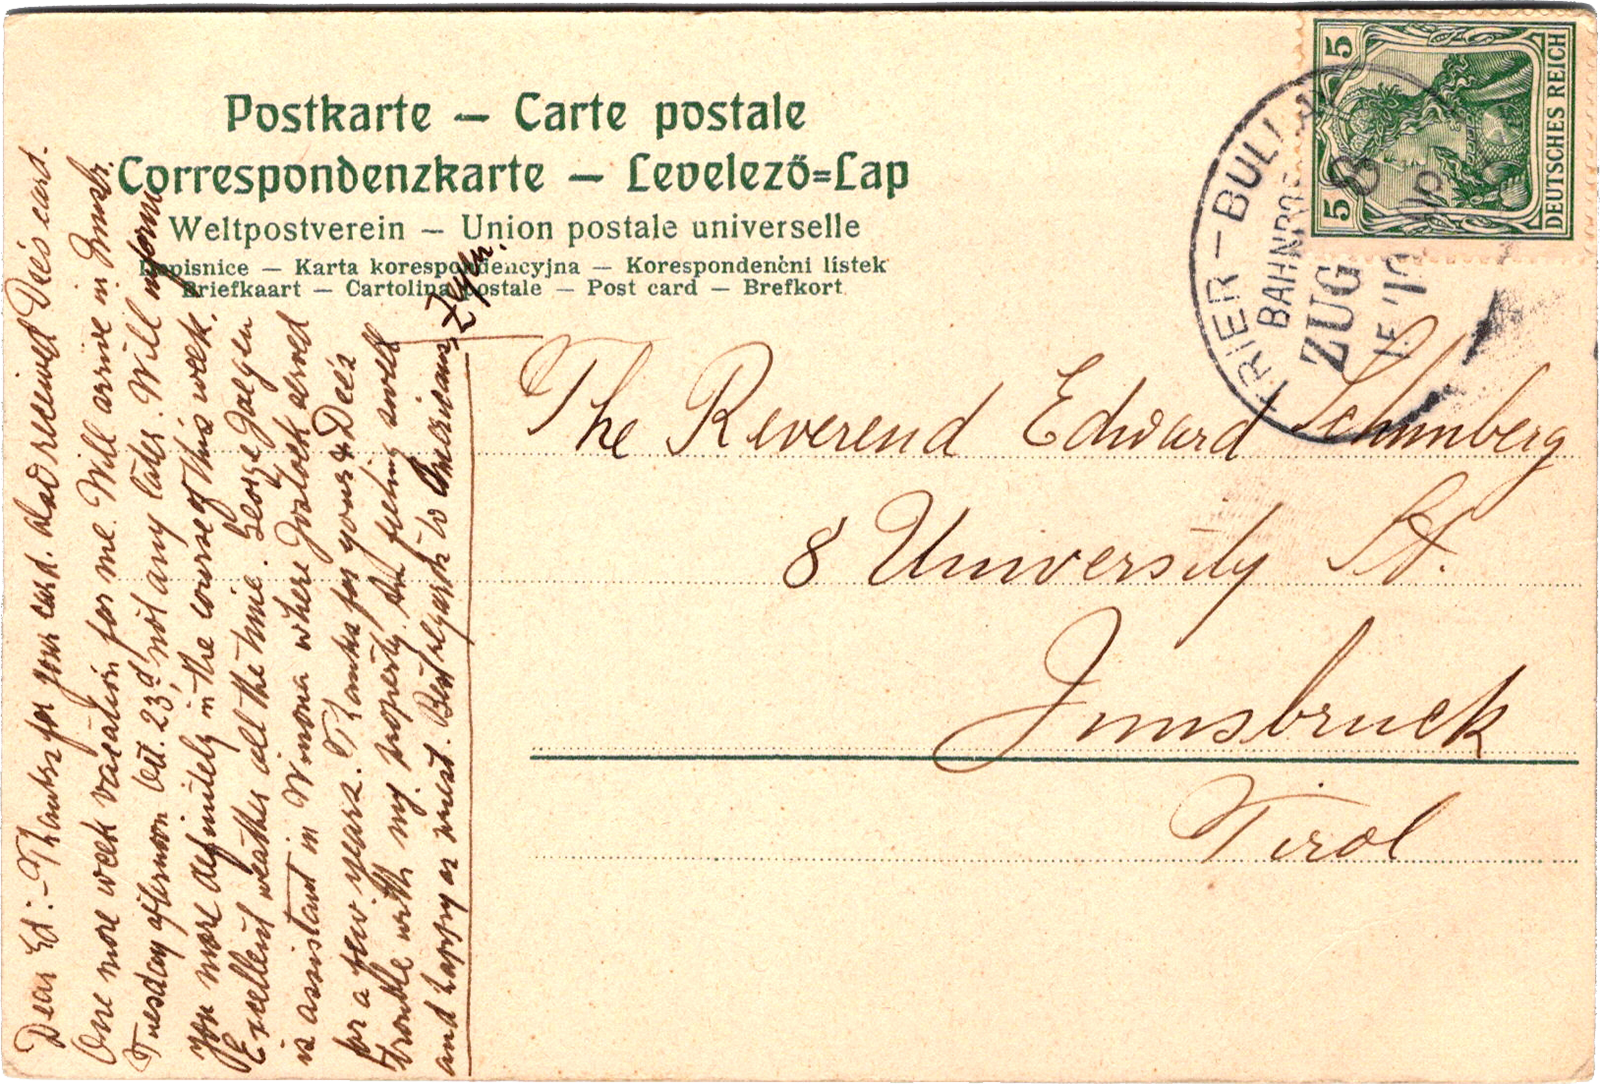 Postkarte — Carte postale
Correspondenzkarte — Levelező=Lap
Weltpostverein — Union postale universelle
Dopisnice — Karta korespondencyjna — Korespondenčni lístek
Briefkaart — Cartolina postale — Post card — Brefkort
5 5
DEUTSCHES REICH
TRIER-BULLAY
BAHNPOST
ZUG
The Reverend Edward
8 University St.
Innsbruck
Tirol
Dear Ed:- Thanks for your card. Also received Dee's card.
One more week vacation for me. Will arrive in Innsb.
Tuesday afternoon Oct. 23d, not any later. Will inform
you more definitely in the course of this week.
Excellent weather all the time. George
is assistant in Winona where
for a few years. Thanks for yours & Dee's
trouble with my property. Am feeling well
and happy as most. Best regards to Americans,